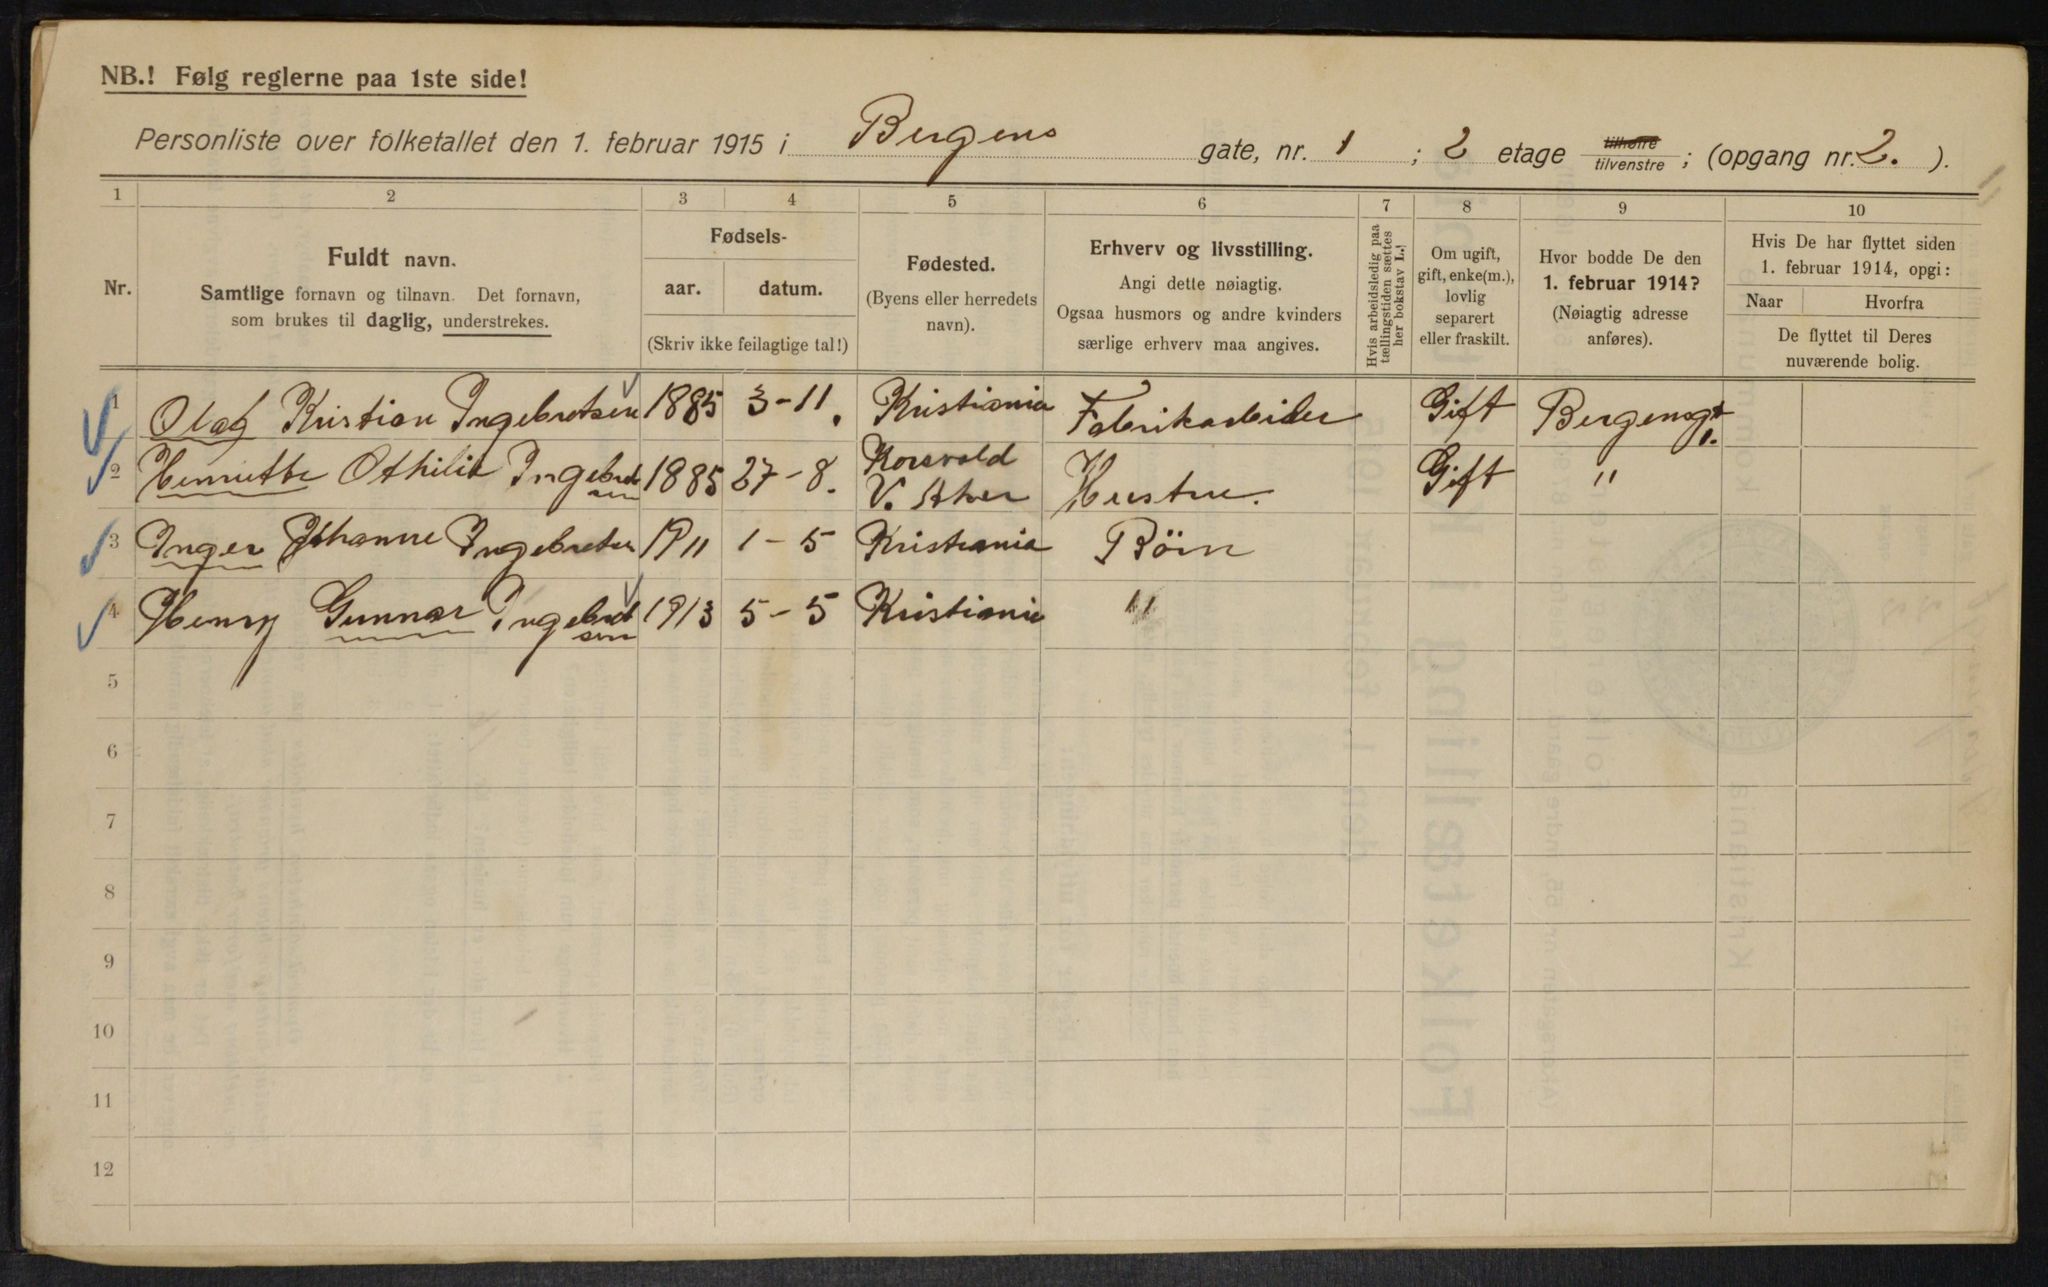 NB.! Følg reglerne paa 1ste side!
Personliste over folketallet den 1. februar 1915 i Bergens gate, nr. 1 ; 2 etage tilhøire tilvenstre ; (opgang nr. 2. ).
1 2 3 4 5 6 7 8 9 10
Nr.
Fuldt navn.
Samtlige fornavn og tilnavn. Det fornavn,
som brukes til daglig, understrekes.
Fødsels-
aar. datum.
(Skriv ikke feilagtige tal!)
Fødested.
(Byens eller herredets
navn).
Erhverv og livsstilling.
Angi dette nøiagtig.
Ogsaa husmors og andre kvinders
særlige erhverv maa angives.
Hvis arbeidsledig paa
tællingstiden sættes
her bokstav L.!
Om ugift,
gift, enke(m.),
lovlig
separert
eller fraskilt.
Hvor bodde De den
1. februar 1914?
(Nøiagtig adresse
anføres).
Hvis De har flyttet siden
1. februar 1914, opgi:
Naar Hvorfra
De flyttet til Deres
nuværende bolig.
1 Olaf Kristian Ingebretsen 1885 3-11. Kristiania Fabrikarbeider Gift Bergensgt 1.
2 Henriette Othilie Ingebretsen 1885 27-8. Korsvold V. Aker Hustru. Gift "
3 Inger Johanne Ingebretsen 1911 1-5 Kristiania Börn
4 Henry Gunnar Ingebretsen 1913 5-5 Kristiania "
5
6
7
8
9
10
11
12